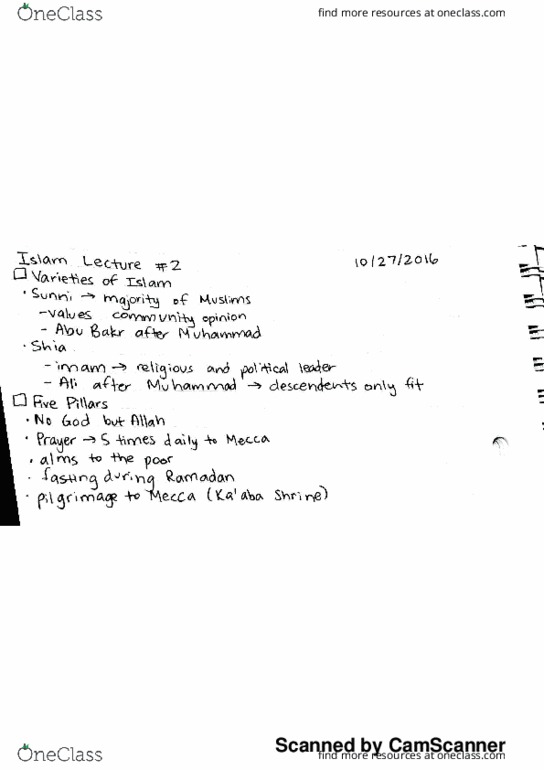 OneClass
find more resources at oneclass.com
Islam Lecture #2 10/27/2016
□ Varieties of Islam
· Sunni → majority of Muslims
- values community opinion
- Abu Bakr after Muhammad
· Shia
- imam → religious and political leader
- Ali after Muhammad → descendents only fit
□ Five Pillars
· No God but Allah
· Prayer → 5 times daily to Mecca
· alms to the poor
· fasting during Ramadan
· pilgrimage to Mecca (Ka'aba Shrine)
Scanned by CamScanner
OneClass
find more resources at oneclass.com